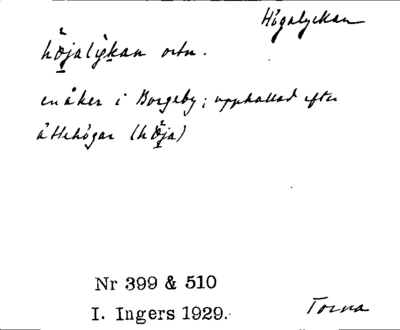 Högalyckan
hö̀jalỳkan ortn.
en åker i Borgeby; uppkallad efter
ättehögar (hö̀ja)
Nr 399 & 510
I. Ingers 1929.
Torna